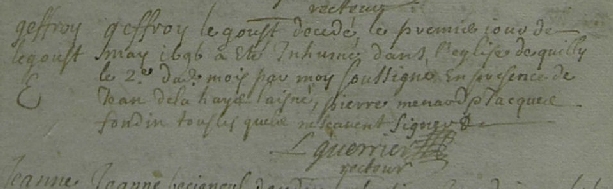 recteur
geffroy geffroy legoust decedé le premier jour de
legoust may 1696 a eté Inhumé dans l'eglise de quilly
le 2.e du.d mois par moy soussigné En presence de
Jean de la haye laisné, pierre menard Jacques
fondin tous lesquels ne scavent signer
L guerrier
recteur
Jeanne Jeanne